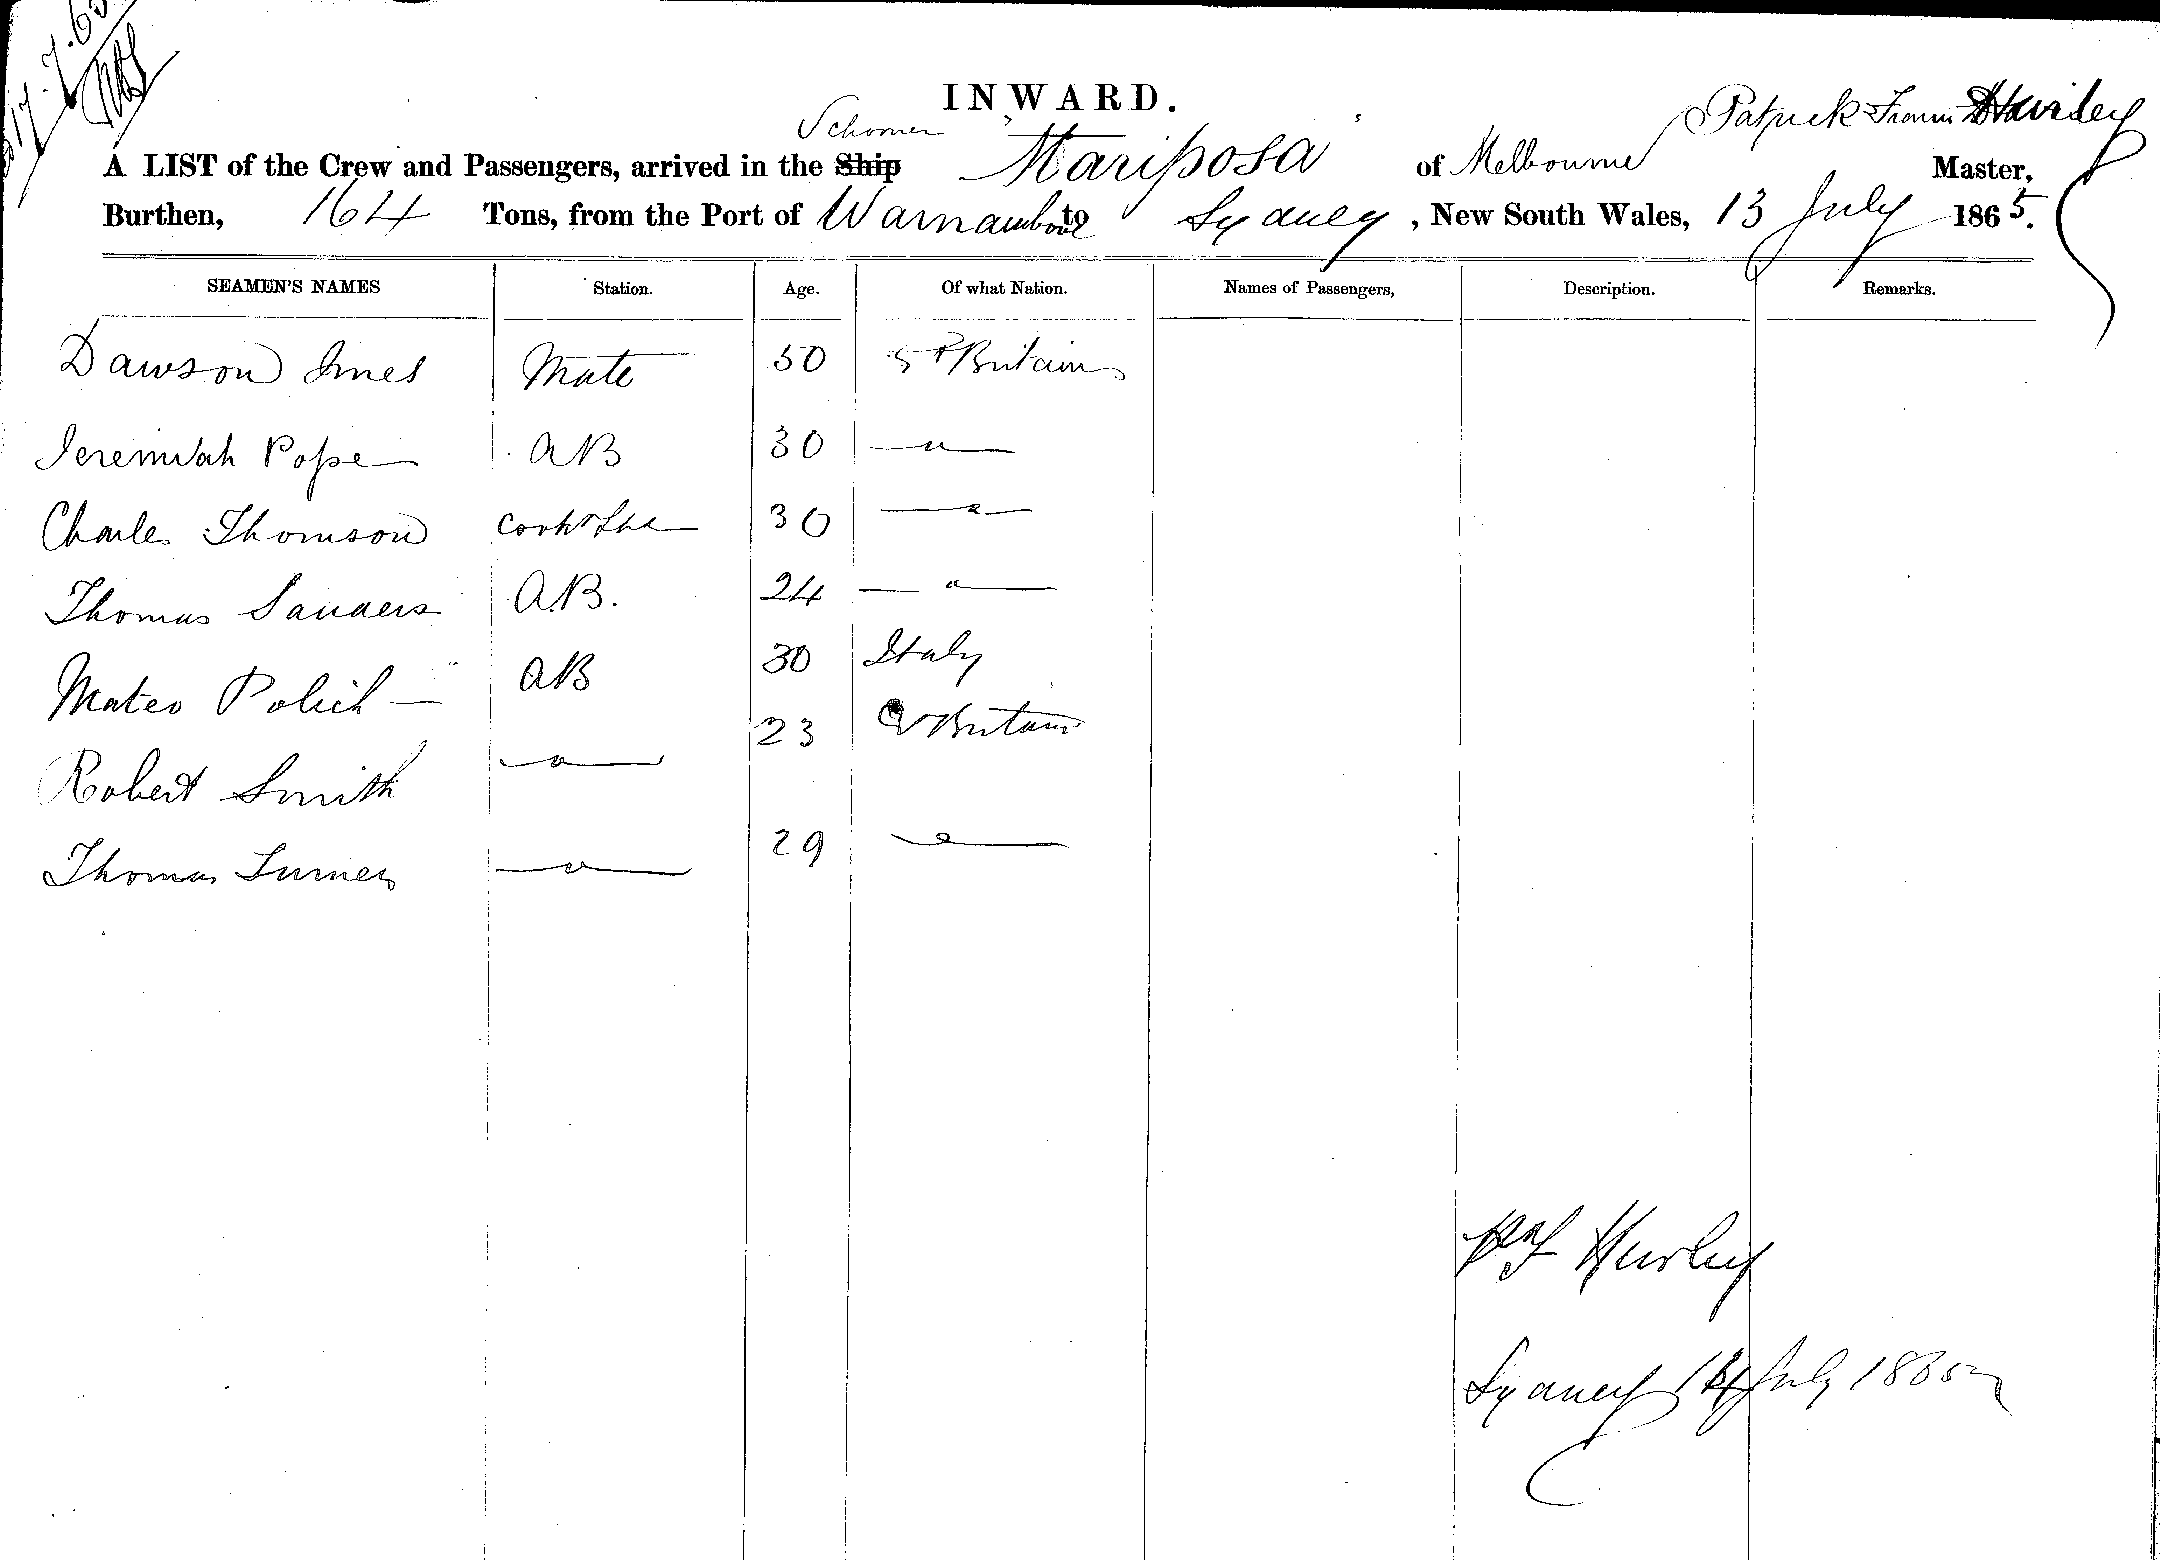 17.7.65
INWARD.
Schooner
Patrick Francis Hurley
A LIST of the Crew and Passengers, arrived in the Ship "Mariposa" of Melbourne Master,
Burthen, 164 Tons, from the Port of Warnambool to Sydney, New South Wales, 13 July 1865.
SEAMEN'S NAMES Station. Age. Of what Nation. Names of Passengers, Description. Remarks.
Dawson Innes Mate 50 Gt Britain
Jeremiah Pope AB 30 —"—
Charles Thomson Cook & 30 —"—
Thomas Sanders A.B. 24 —"—
Mateo Polich — AB 30 Italy
Robert Smith —"— 23 Gt Britain
Thomas Turner —"— 29 —"—
P F Hurley
Sydney July 1865